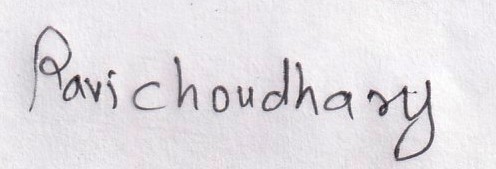 Ravi choudhary